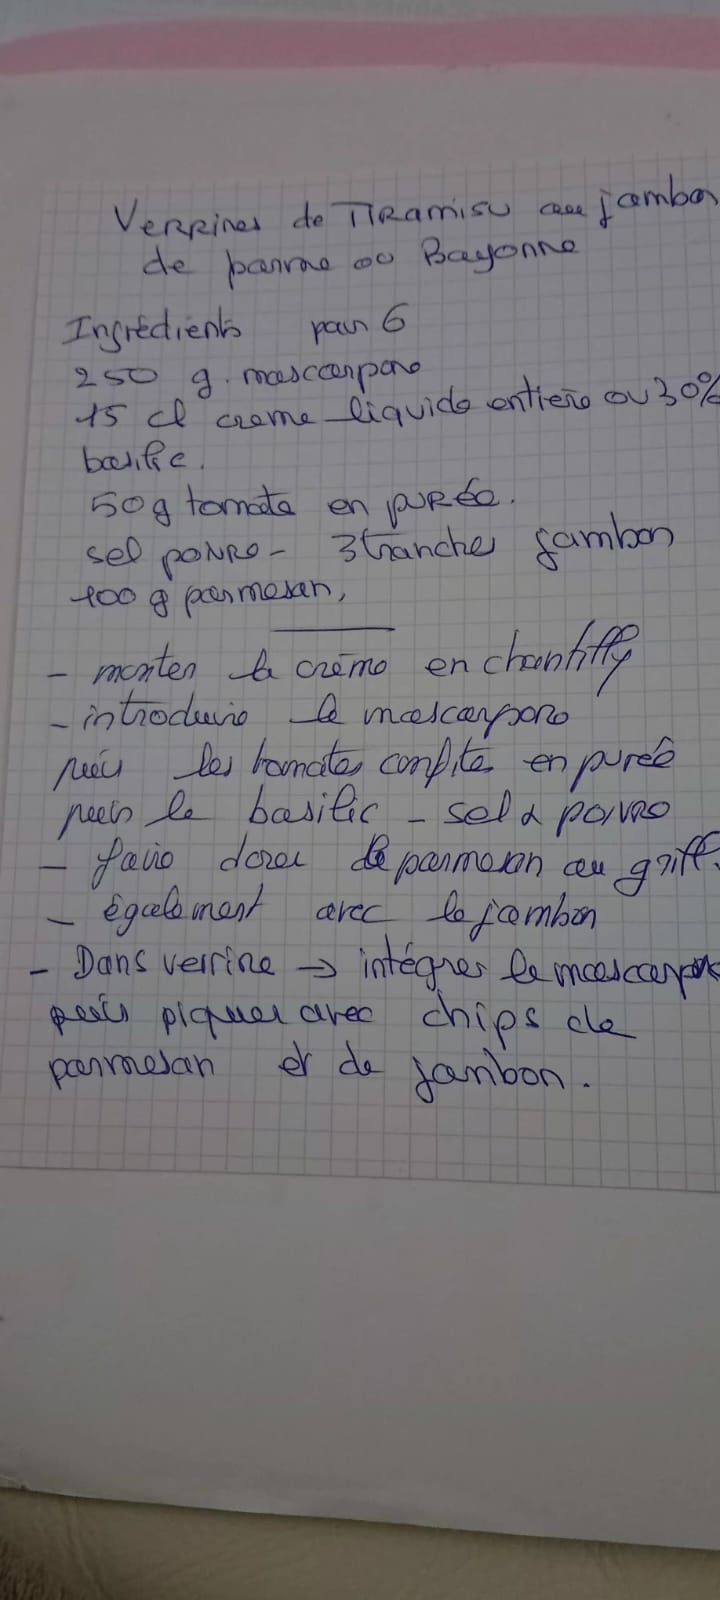 Verrines de Tiramisu au jambon
de parme ou Bayonne
Ingrédients pour 6
250 g. mascarpone
15 cl creme liquide entiere ou 30%
basilic.
50g tomate en purée.
sel poivre - 3 tranches jambon
100 g parmesan,
- monter la crème en chantilly
- introduire le mascarpone
puis les tomates confites en purée
puis le basilic - sel & poivre
- faire dorer le parmesan au grill.
- également avec le jambon
- Dans verrine → intégrer le mascarpone
puis piquer avec chips de
parmesan et de jambon.